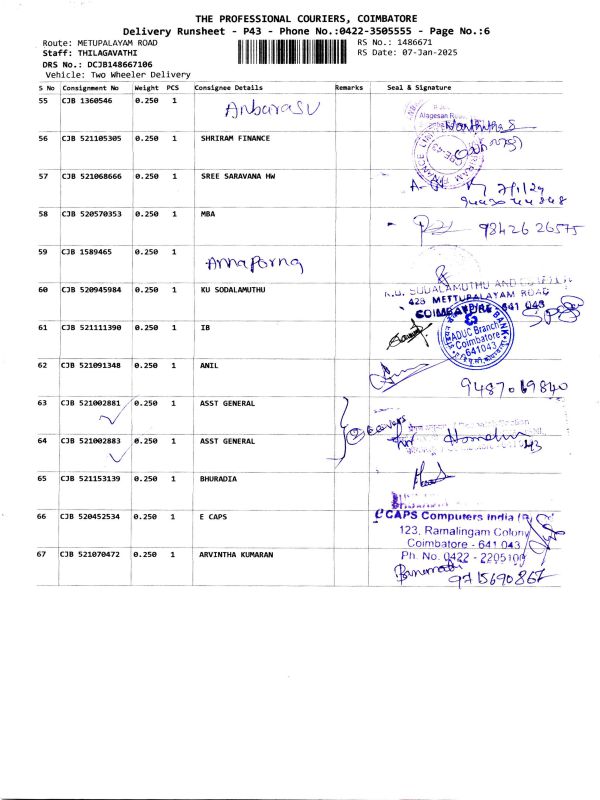 THE PROFESSIONAL COURIERS, COIMBATORE
Delivery Runsheet - P43 - Phone No.:0422-3505555 - Page No.:6
Route: METUPALAYAM ROAD RS No.: 1486671
Staff: THILAGAVATHI RS Date: 07-Jan-2025
DRS No.: DCJB148667106
Vehicle: Two Wheeler Delivery
S No Consignment No Weight PCS Consignee Details Remarks Seal & Signature
55 CJB 1360546 0.250 1 Anbarasu
Alagesan Road
56 CJB 521105305 0.250 1 SHRIRAM FINANCE
57 CJB 521068666 0.250 1 SREE SARAVANA HW
58 CJB 520570353 0.250 1 MBA 98426 26575
59 CJB 1589465 0.250 1 Annaporna
60 CJB 520945984 0.250 1 KU SODALAMUTHU
K.U. SODALAMUTHU AND
428 METTUPALAYAM ROAD
COIMBATORE 641 043
61 CJB 521111390 0.250 1 IB
BANK
ADUC Branch
Coimbatore
641043
62 CJB 521091348 0.250 1 ANIL
9487069840
63 CJB 521002881 0.250 1 ASST GENERAL
64 CJB 521002883 0.250 1 ASST GENERAL
65 CJB 521153139 0.250 1 BHURADIA
66 CJB 520452534 0.250 1 E CAPS
CAPS Computers India (P)
123, Ramalingam Colony
Coimbatore - 641 043
Ph. No. 0422 - 2205100
67 CJB 521070472 0.250 1 ARVINTHA KUMARAN
9715690867